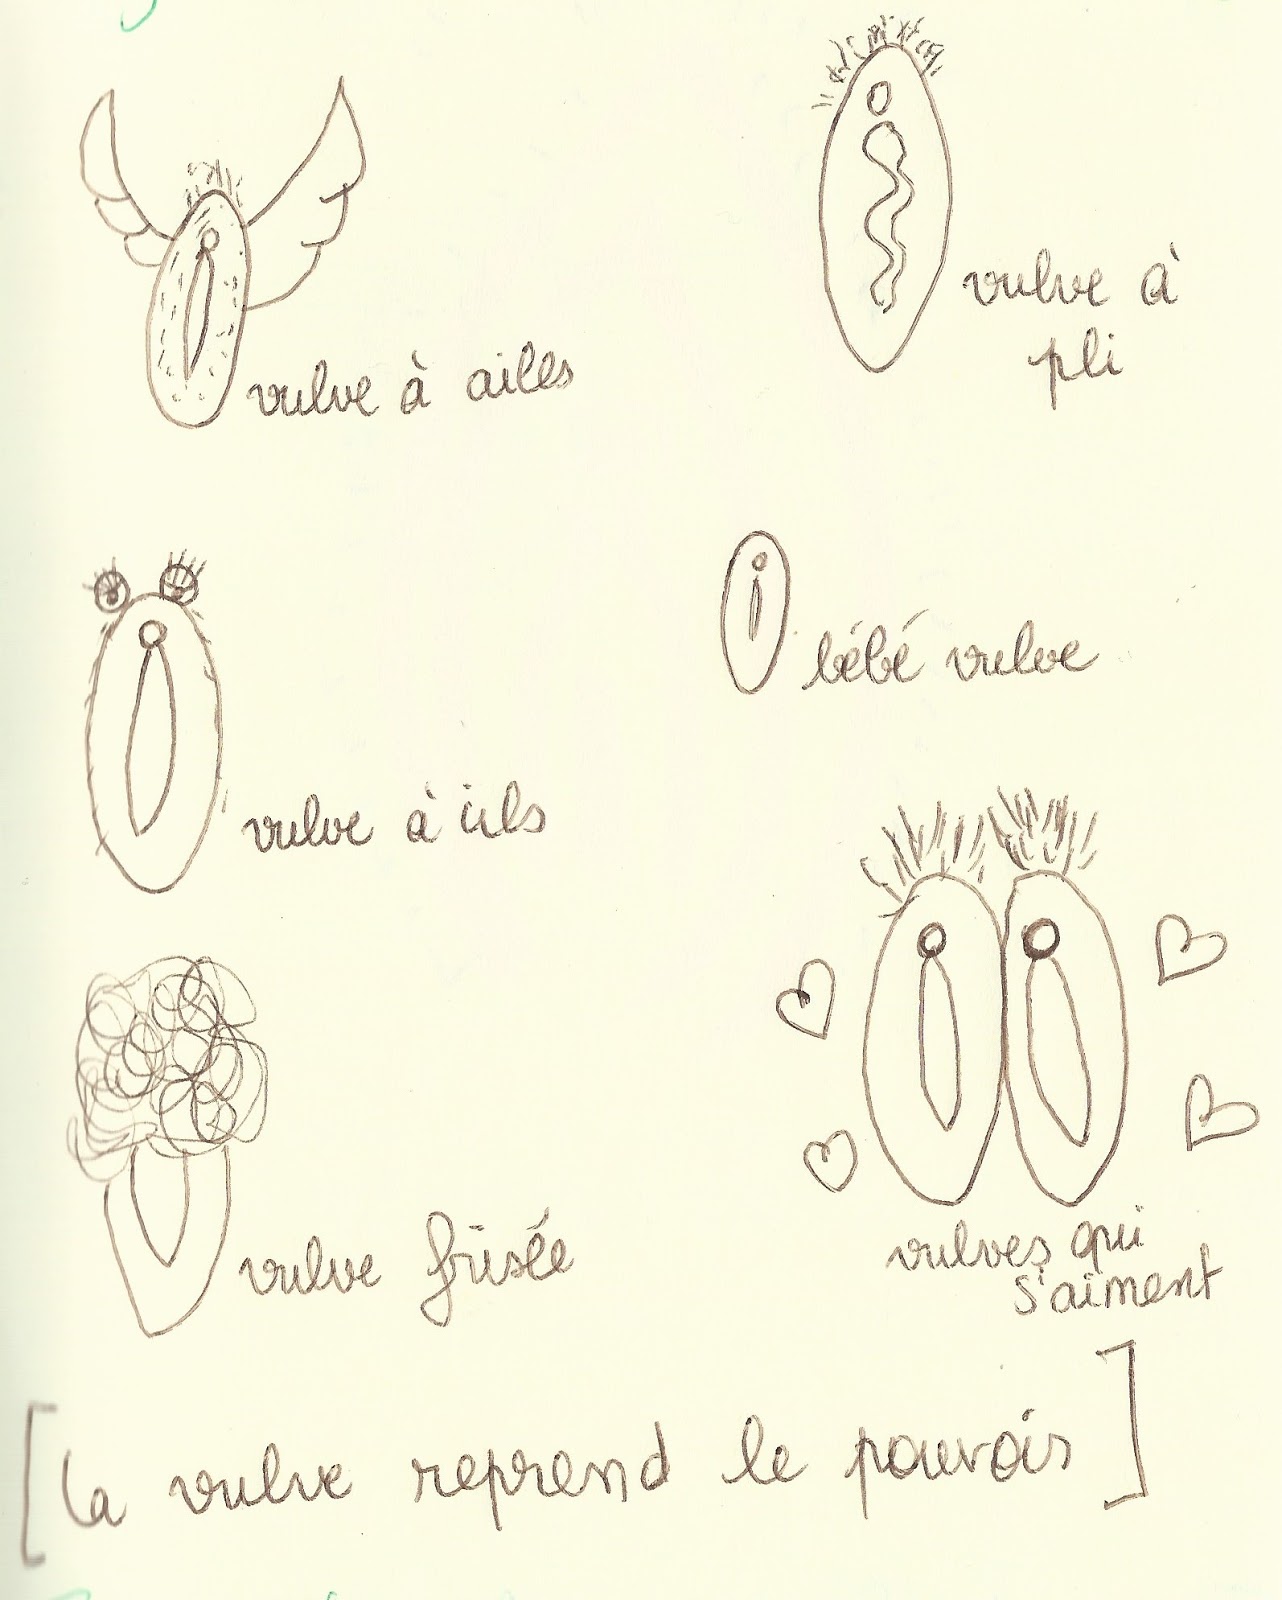 vulve à ailes
vulve à
pli
bébé vulve
vulve à cils
vulve frisée
vulves qui
s'aiment
[la vulve reprend le pouvoir]